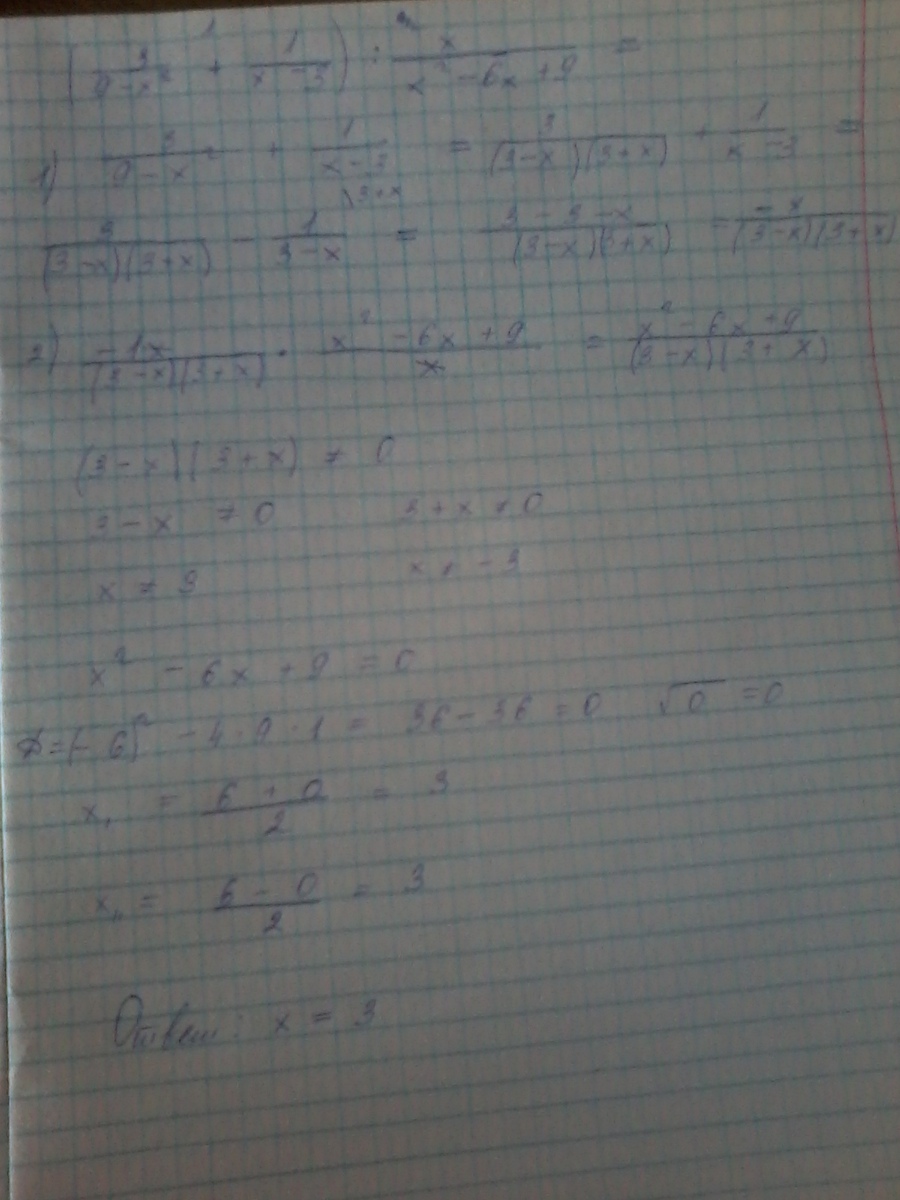 ( 3/(9-x²) + 1/(x-3) ) : x/(x²-6x+9) =
1) 3/(9-x²) + 1/(x-3) = 3/((3-x)(3+x)) + 1/(x-3) =
\3+x
3/((3-x)(3+x)) - 1/(3-x) = (3-3-x)/((3-x)(3+x)) = -x/((3-x)(3+x))
2) -1x/((3-x)(3+x)) · (x²-6x+9)/x = (x²-6x+9)/((3-x)(3+x))
(3-x)(3+x) ≠ 0
3-x ≠ 0 3+x ≠ 0
x ≠ 3 x ≠ -3
x² - 6x + 9 = 0
D=(-6)² - 4·9·1 = 36-36 = 0 √0 = 0
x, = (6+0)/2 = 3
x,, = (6-0)/2 = 3
Ответ: x = 3